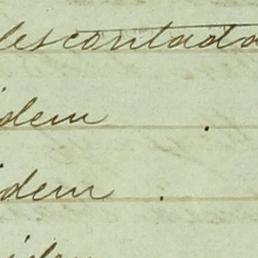 descontada
idem .
idem .
idem